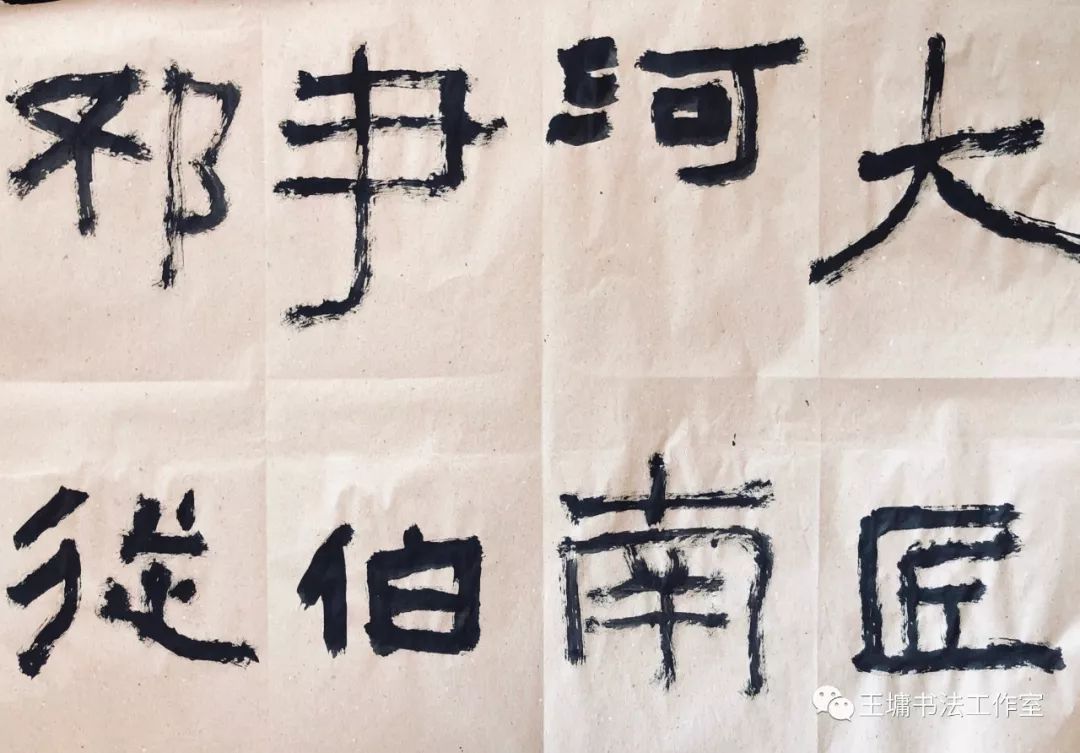 大匠
河南
尹伯
邳從
王墉书法工作室